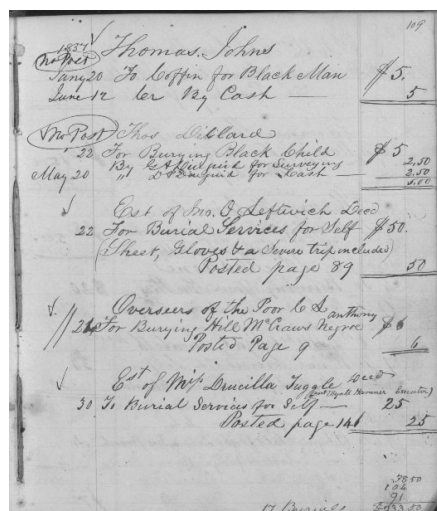 109
1857 Thomas Johns
No Post
Jany 20 To Coffin for Black Man $5.
June 12 Cr By Cash 5
No Post Thos Dibbard
22 For Burying Black Child $5
By G A Diuguid for Surveying 2.50
May 20 " D P Diuguid for Cash — 2.50
5.00
Est of Jno. O. Leftwich Decd
22 For Burial Services for Self $50.
(Sheet, Gloves & a Seven trip included)
Posted page 89 50
Overseers of the Poor C L anthony
26 For Burying Hill McCraws Negroe $6
Posted Page 9 6
Est of Miss Drucilla Tuggle Decd
30 To Burial Services for Self — 25
Posted page 146 25
78.50
106
91
17 Burials